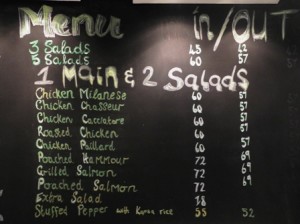 Menu in/OUT
3 Salads 45 42
5 Salads 60 57
1 Main & 2 Salads
Chicken Milanese 60 57
Chicken Chasseur 60 57
Chicken Cacciature 60 57
Roasted Chicken 60 57
Chicken Paillard 60 57
Poached Hammour 72 69
Grilled Salmon 72 69
Poached Salmon 72 69
Extra Salad 18
Stuffed Pepper with Karma rice 55 52